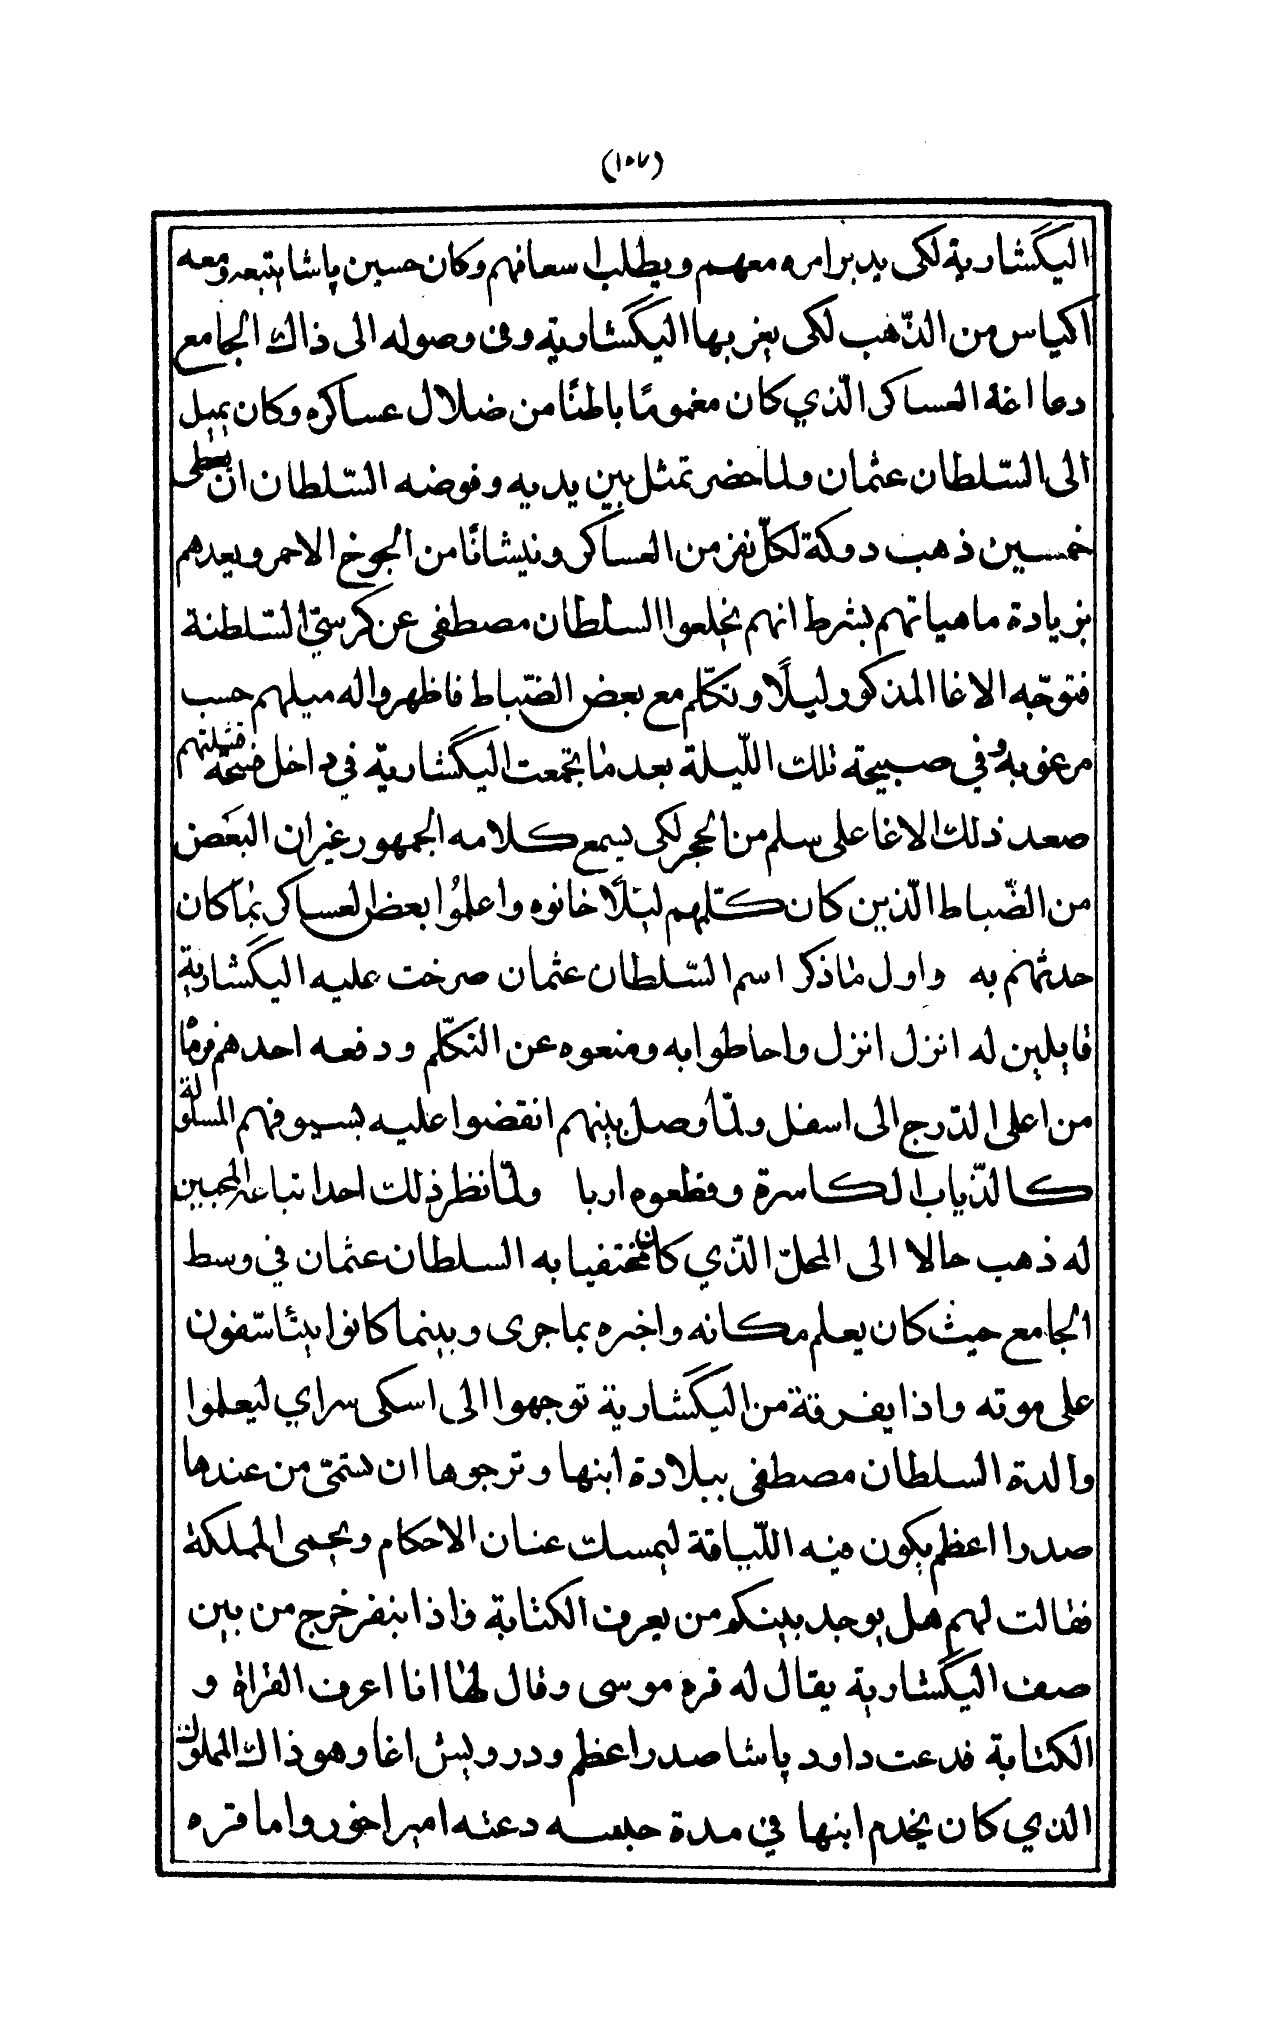 (١٠٧)
اليكشارية لكى يدبر امره معهم ويطلب اسعافهم وكان حسين پاشا يتبعه ومعه
اكياس من الذّهب لكى يغر بها اليكشارية وفى وصوله الى ذاك الجامع
دعا اغة العساكر الّذي كان مغمومًا باطنًا من ضلال عساكره وكان يميل
الى السّلطان عثمان ولما حضر تمثل بين يديه وفوضه السّلطان ان يعطى
خمسين ذهب دوكة لكلّ نفر من العساكر ونيشانًا من الجوخ الاحمر ويعدهم
بزيادة ماهياتهم بشرط انهم يخلعوا السلطان مصطفى عن كرسيّ السّلطنة
فتوجّه الاغا المذكور ليلًا وتكّلم مع بعض الضّباط فاظهروا له ميلهم حسب
مرغوبه وفي صبيحة تلك اللّيلة بعد ما تجمعت اليكشاريّة في داخل فسحة قشلتهم
صعد ذلك الاغا على سلم من الحجر لكى يسمع كلامه الجمهور غير ان البعض
من الضّباط الّذين كان كلّمهم ليلًا خانوه واعلمُوا بعض العساكر بما كان
حدثهم به واول ما ذكر اسم السّلطان عثمان صرخت عليه اليكشارية
قايلين له انزل انزل واحاطوا به ومنعوه عن التكّلم ودفعه احدهم فرمًا
من اعلى الدّرج الى اسفل ولمّا وصل بينهم انقضوا عليه بسيوفهم المسلولة
كالذّياب الكاسرة وقطعوه اربا ولمّا نظر ذلك احد اتباعه المحبين
له ذهب حالا الى المحلّ الذّي كان مختفيا به السلطان عثمان في وسط
الجامع حيث كان يعلم مكانه واخبره بما جرى وبينما كانوا يتأسّفون
على موته واذا بفرقة من اليكشارية توجهوا الى اسكى سراي ليعلموا
والدة السلطان مصطفى ببلادة ابنها وترجوها ان تسمّى من عندها
صدرا اعظم يكون فيه اللّياقة ليمسك عنان الاحكام ويحمى المملكة
فقالت لهم هل يوجد بينكم من يعرف الكتابة واذا بنفر خرج من بين
صف اليكشارية يقال له قره موسى وقال لها انا اعرف القراة و
الكتابة فدعت داود پاشا صدر اعظم ودرويش اغا وهو ذاك المملوك
الذي كان يخدم ابنها في مدة حبسه دعته اميراخور واما قره